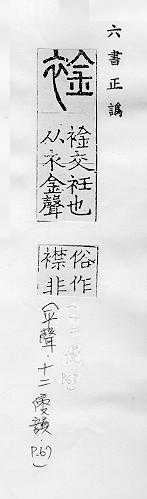 六書正譌
䘳
䘳交衽也
从衣金聲
俗作
襟非
(平聲.十二侵韻 P.67)